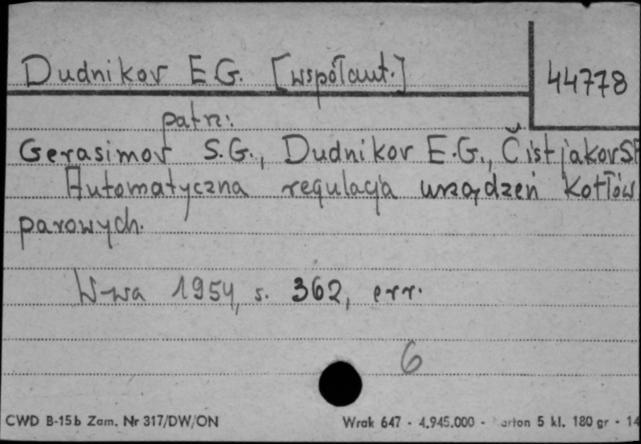 Dudnikov E G. [współaut.]
44778
patrz:
Gerasimov S.G., Dudnikov E.G., Čistjakov S
Automatyczna regulacja urządzeń kotłów
parowych.
W-wa 1954, s. 362, err.
6
CWD B-15b Zam. Nr 317/DW/ON
Wrak 647 - 4.945.000 - 5 kl. 180 gr -